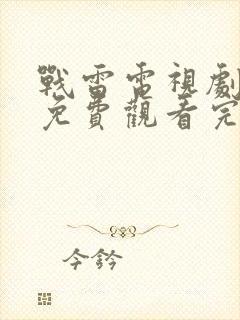 戰雷電視劇
免費觀看完
今鈐